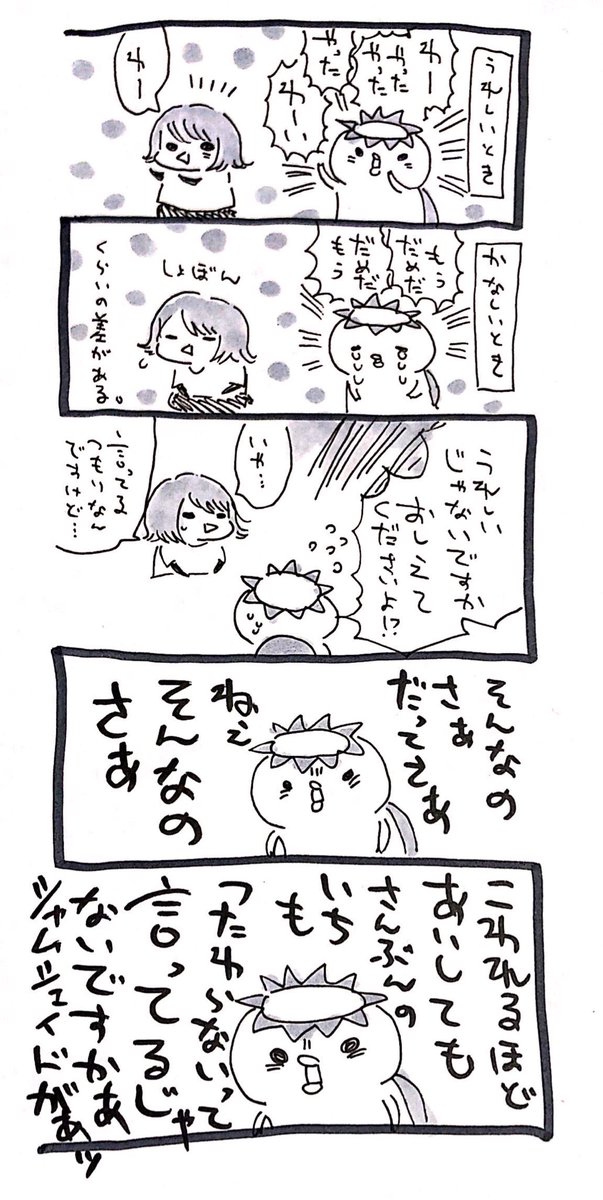 うれしいとき
わー
やった
やった
やった
わーい
わー
かなしいとき
もう
だめだ
だめだ
もう
しょぼん
くらいの差がある。
うれしい
じゃないですか
おしえて
くださいよ!?
いや…
言ってる
つもりなん
ですけど…
そんなの
さぁ
だってさぁ
ねぇ
そんなの
さぁ
こわれるほど
あいしても
さんぶんの
いち
も
つたわらないって
言ってるじゃ
ないですかあ
シャムシェイドがぁッ